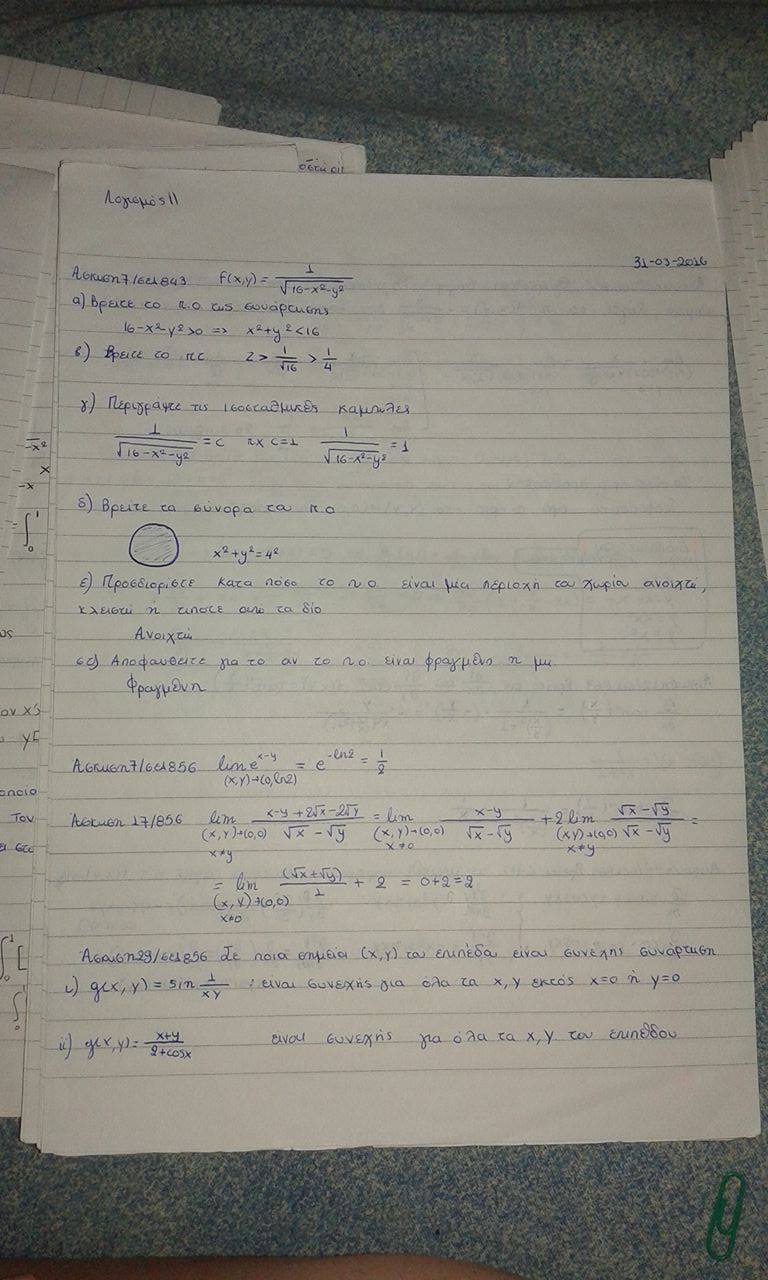 Λογισμός ΙΙ
31-03-2016
Άσκηση 7/σελ 843 f(x,y) = 1/√(16-x²-y²)
α) Βρείτε το π.ο της συνάρτησης
16-x²-y²>0 => x²+y²<16
β) Βρείτε το πς z > 1/√16 > 1/4
γ) Περιγράψτε τις ισοσταθμικές καμπύλες
1/√(16-x²-y²) = c πχ c=1 1/√(16-x²-y²) = 1
δ) Βρείτε τα σύνορα τα π.ο
x²+y²=4²
ε) Προσδιορίστε κατα πόσο το π.ο. είναι μία περιοχή του χωρίου ανοιχτή,
κλειστή ή τίποτε από τα δίο
Ανοιχτή
στ) Αποφανθείτε για το αν το π.ο. είναι φραγμένη η μη.
Φραγμένη
Άσκηση 7/σελ 856 lim e^(x-y) (x,y)→(0,ln2) = e^(-ln2) = 1/2
Άσκηση 17/856 lim (x,y)→(0,0) x≠y (x-y+2√x-2√y)/(√x-√y) = lim (x,y)→(0,0) x≠0 (x-y)/(√x-√y) + 2 lim (x,y)→(0,0) x≠y (√x-√y)/(√x-√y) =
= lim (x,y)→(0,0) x≠0 (√x+√y)/1 + 2 = 0+2=2
Άσκηση 29/σελ 856 Σε ποια σημεία (x,y) του επιπέδα είναι συνεχής συνάρτηση
i) g(x,y) = sin 1/xy : είναι συνεχής για όλα τα x,y εκτός x=0 ή y=0
ii) g(x,y) = (x+y)/(2+cosx) είναι συνεχής για όλα τα x,y του επιπέδου